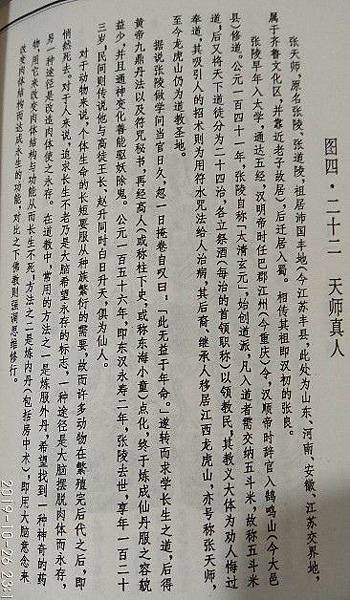 图四·二十二　天师真人
张天师，原名张陵、张道陵，祖居沛国丰地（今江苏丰县，此处为山东、河南、安徽、江苏交界地，
属于齐鲁文化区，并靠近老子故居），后迁居入蜀。相传其祖即汉初的张良。
张陵早年入大学，通达五经，汉明帝时任巴郡江州（今重庆）令，汉顺帝时辞官入鹤鸣山（今大邑
县）修道。公元一百四十一年，张陵自称「大清玄元」，始创道派，凡入道者需交纳五斗米，故称五斗米
道，后又将天下道徒分为二十四治，各立祭酒（每治的首领职称）以领教民，其教义大体为劝人悔过
奉道，其吸引人的招术则为用符水咒法给人治病，其后裔、继承人移居江西龙虎山，亦号称张天师，
至今龙虎山仍为道教圣地。
据说张陵做学问当官日久，忽一日掩卷自叹曰：「此无益于年命。」遂转而求学长生之道，后得
黄帝九鼎丹法以及符咒秘书，再经高人（或称柱下史，或称东海小童）点化，终于炼成仙丹服之容貌
益少，并且通神变化善能驱妖除鬼。公元一百五十六年，即东汉永寿二年，张陵去世，享年一百二十
三岁，民间则传说他与高徒王长、赵升同时白日升天，俱为仙人。
对于动物来说，个体生命的长短要服从种族繁衍的需要，故而许多动物在繁殖完后代之后，即
悄然死去。对于人来说，追求长生不老乃是大脑希望永存的标志，一种途径是大脑摆脱肉体而永存，
另一种途径是改造肉体使之永存。在道教中，常用的方法之一是炼服外丹，希望找到一种神奇的药
物，用它来改变肉体结构与功能从而长生不死，方法之二是炼内丹（包括房中术），即用大脑意念来
改变肉体结构而达成永生的功能，对比之下佛教则强调思维修行。
2019-10-26 23:1